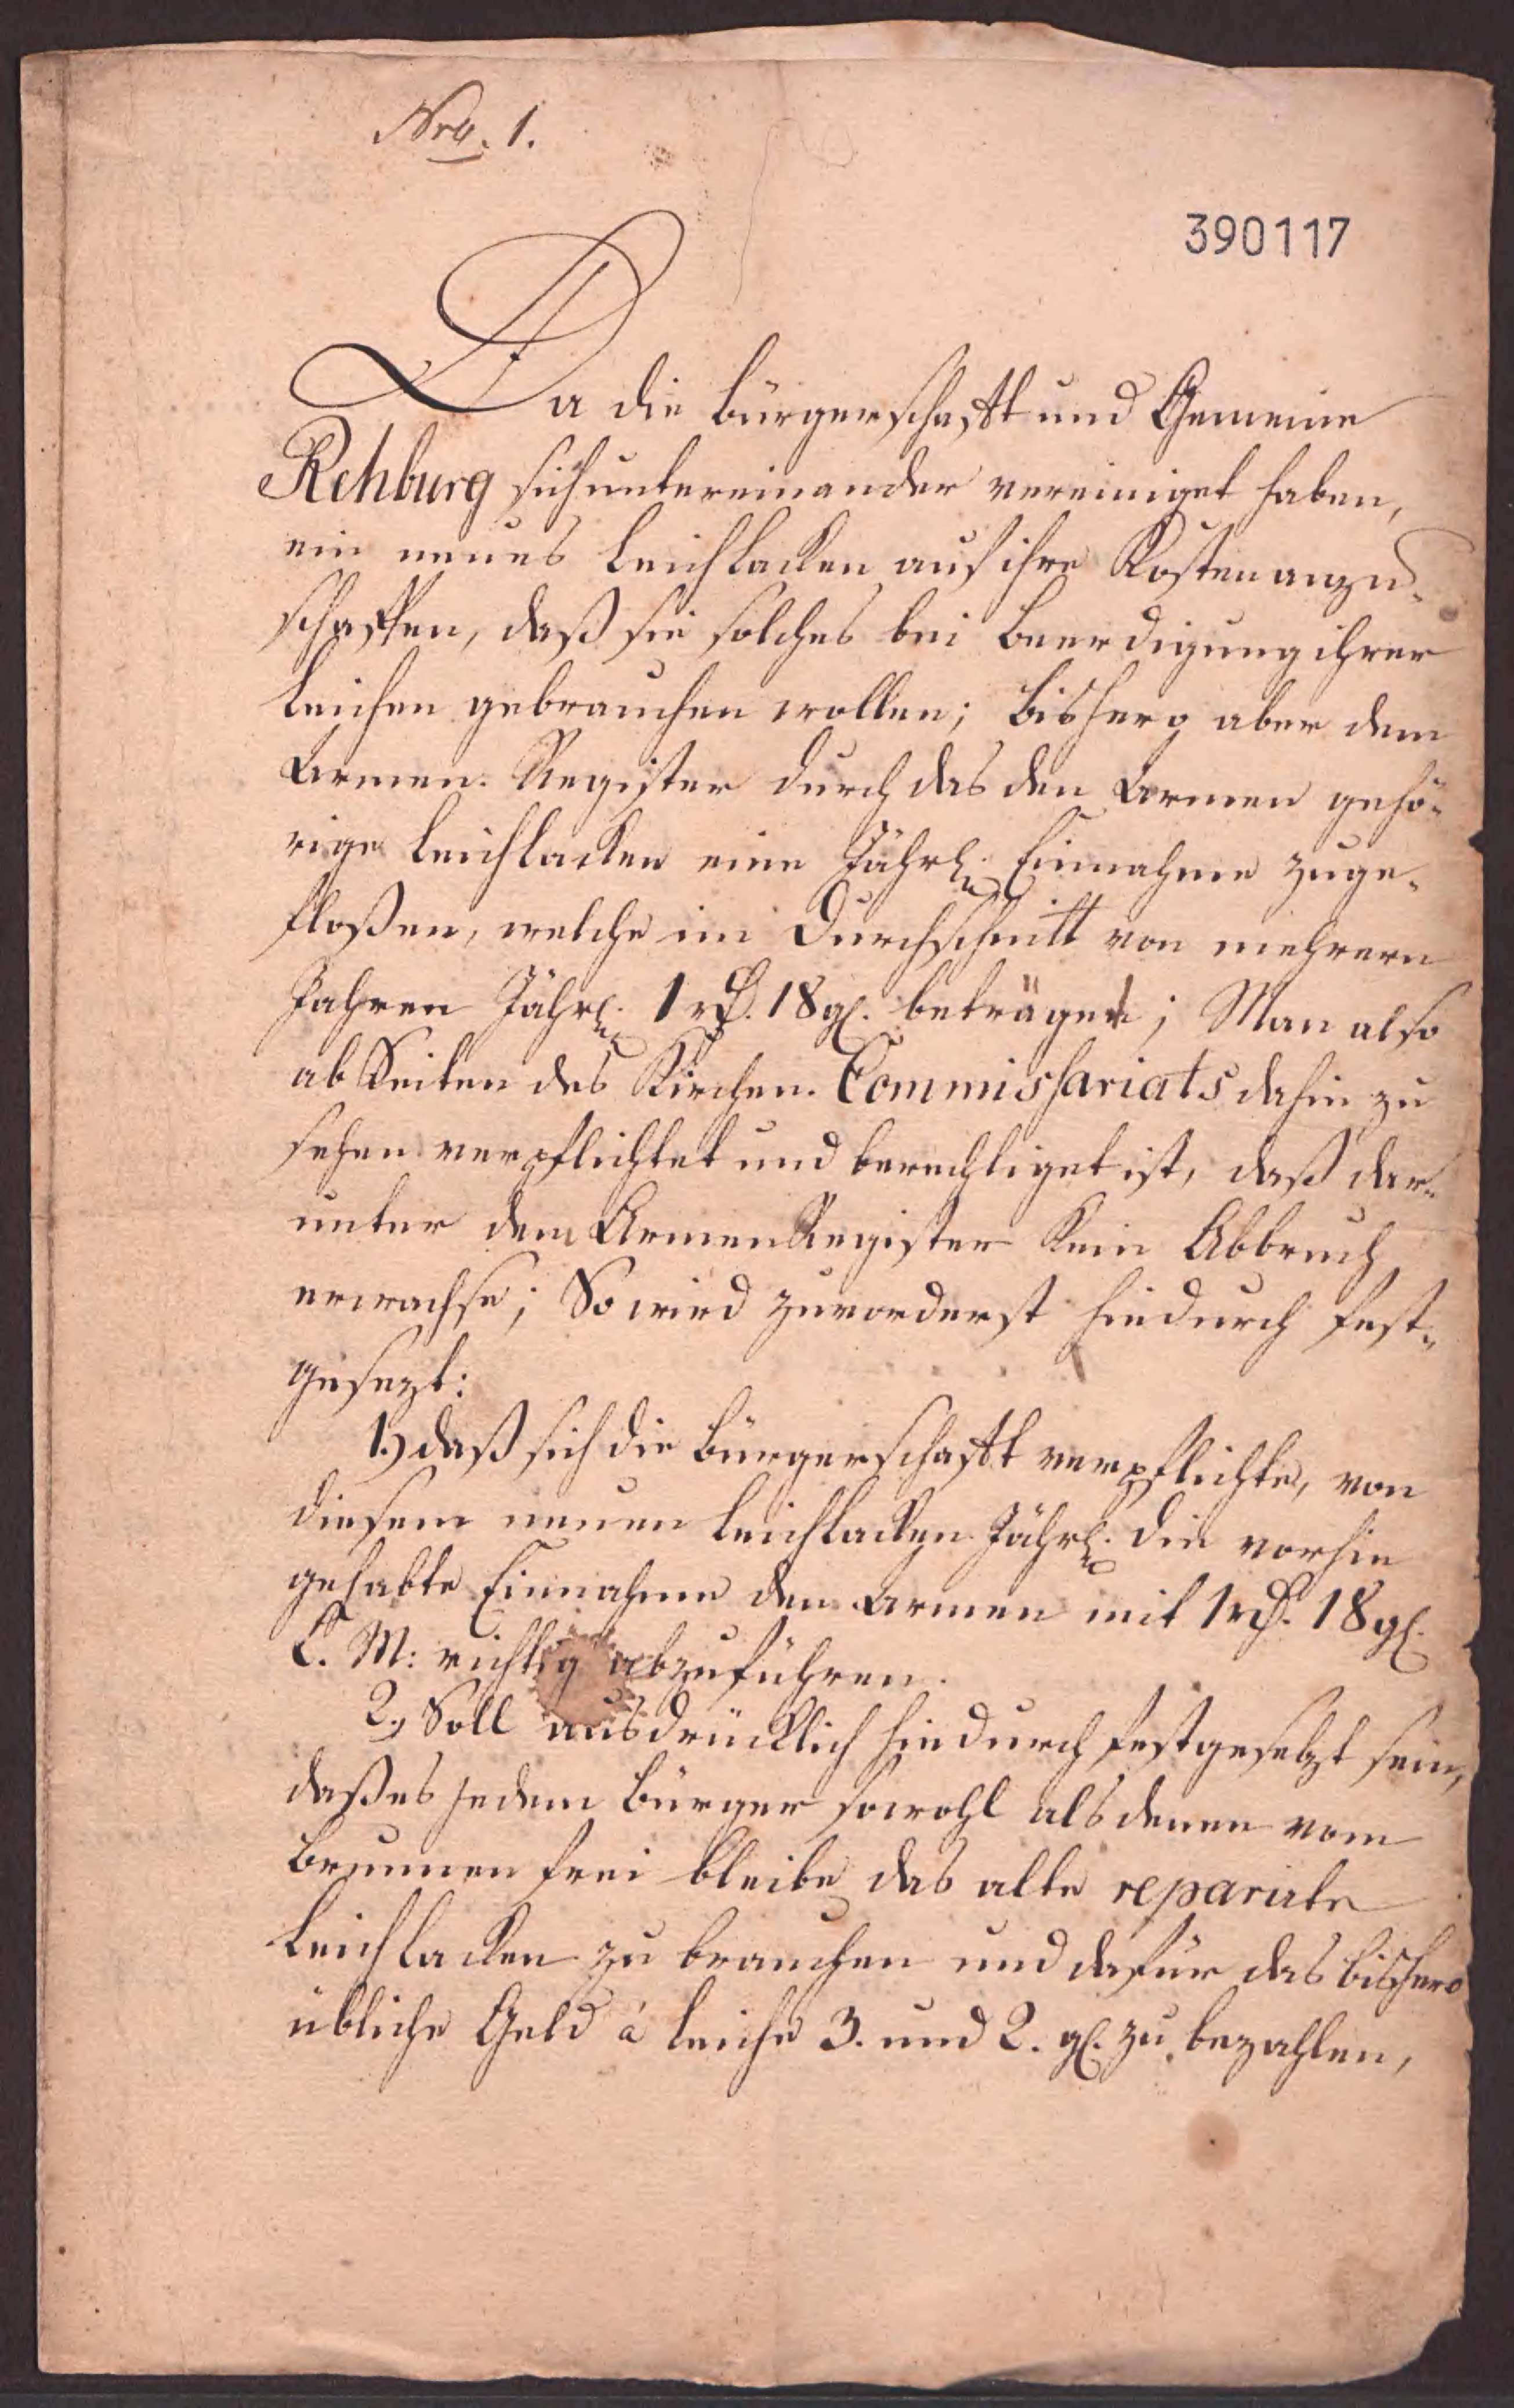 Nro. 1.
390117
Da die Bürgerschafft und Gemeine
Rehburg sich untereinander vereiniget haben,
ein neues Leichlacken auf ihre Kosten anzu-
schaffen, daß sie solches bei Beerdigung ihrer
Leichen gebrauchen wollen; bishero aber dem
Armen-Register durch das den Armen gehö-
rige Leichlacken eine Jährl. Einnahme zuge-
floßen, welche im Durchschnitt von mehrern
Jahren Jährl. 1 rth. 18 gl. beträget; Man also
ab Seiten des Kirchen-Commissariats dahin zu
sehen verpflichtet und berechtiget ist, daß dar-
unter dem Armen Register kein Abbruch
erwachse; So wird zuvorderst hiedurch fest-
gesezt:
1.) daß sich die Bürgerschafft verpflichte, von
diesem neuen Leichlacken Jährl. die vorhin
gehabte Einnahme den Armen mit 1 rth. 18 gl.
C. M: richtig abzuführen.
2.) Soll ausdrücklich hiedurch festgesetzt sein,
daß es jedem Bürger sowohl als denen vom
Brunnen frei bleibe das alte reparirte
Leichlacken zu brauchen und dafür das bishero
übliche Geld à Leiche 3. und 2. gl. zu bezahlen,